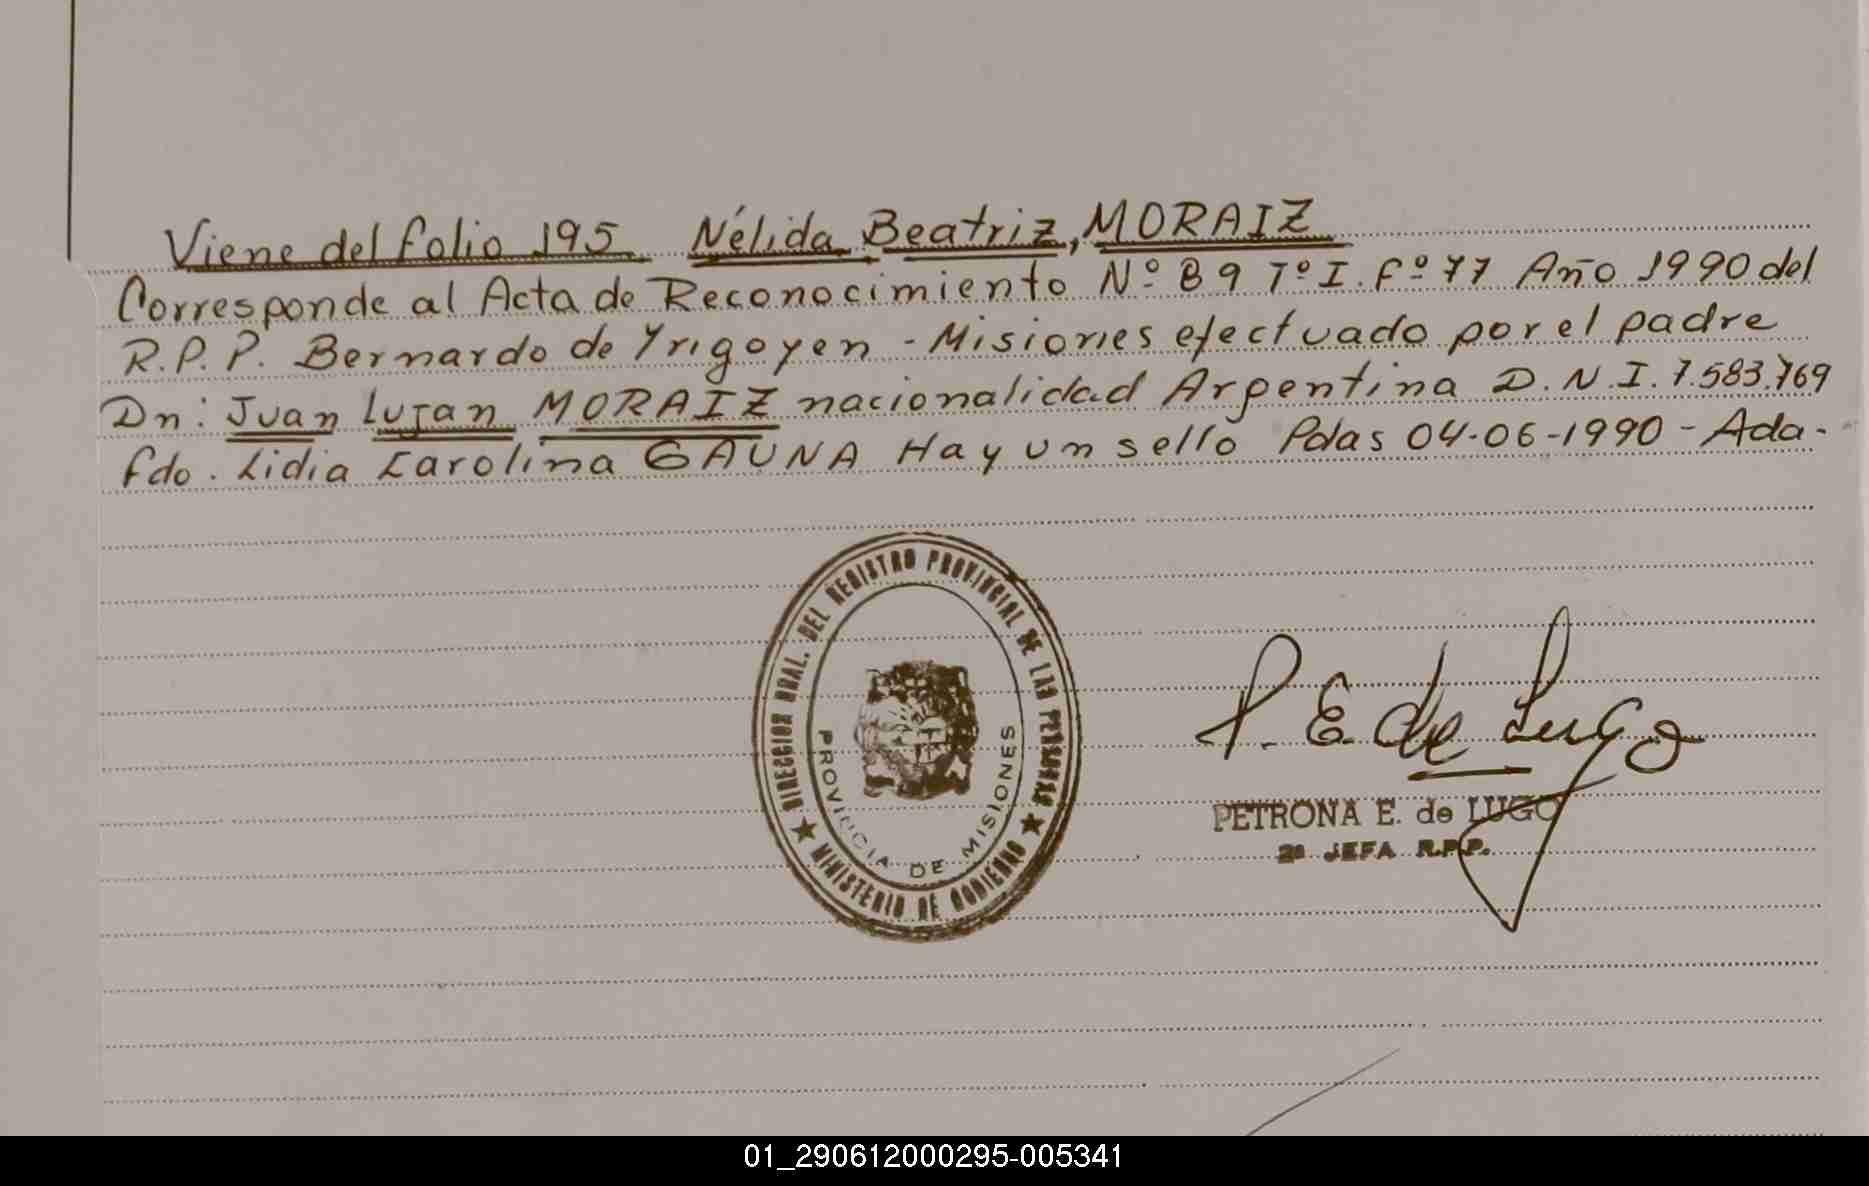 Viene del folio 195 Nélida Beatriz, MORAIZ
Corresponde al Acta de Reconocimiento Nº 89 Tº I. Fº 77 Año 1990 del
R.P.P. Bernardo de Yrigoyen - Misiones efectuado por el padre
Dn: Juan Lujan MORAIZ nacionalidad Argentina D.N.I. 7.583.769
fdo. Lidia Carolina GAUNA Hay un sello Pdas 04-06-1990 - Ada.
DIRECCION GRAL. DEL REGISTRO PROVINCIAL DE LAS PERSONAS
★ MINISTERIO DE GOBIERNO ★
PROVINCIA DE MISIONES
P. E. de Lugo
PETRONA E. de LUGO
2ª JEFA R.P.P.
01_290612000295-005341